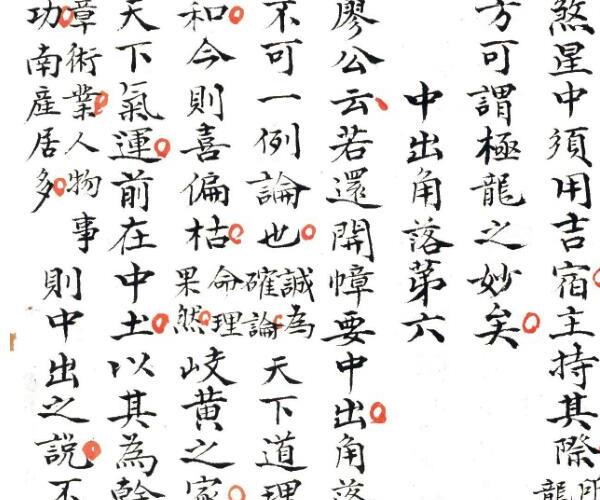 煞星中須用吉宿主持其際
方可謂極龍之妙矣
中出角落第六
廖公云若還開幛要中出角落
不可一例論也誠為確論天下道理
和今則喜偏枯命理果然岐黃之家
天下氣運前在中土以其為幹
章術業人物事功南產居多則中出之説不